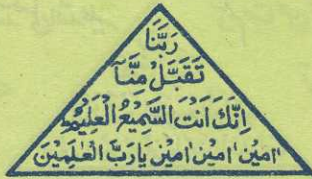 رَبَّنَا
تَقَبَّلْ مِنَّا
اِنَّكَ اَنْتَ السَّمِيْعُ الْعَلِيْمُ
اٰمِيْن اٰمِيْن اٰمِيْن يَارَبَّ الْعٰلَمِيْنَ